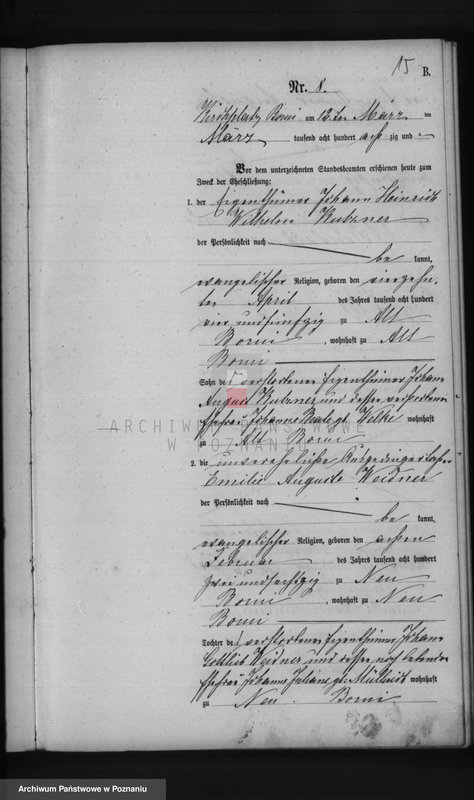 15
B.
Nr. 8.
Kirchplatz Borui am 12ten März
März tausend acht hundert acht zig und
Vor dem unterzeichneten Standesbeamten erschienen heute zum
Zweck der Eheschließung:
1. der Eigenthümer Johann Heinrich
Wilhelm Kutzner
der Persönlichkeit nach
be kannt,
evangelischer Religion, geboren den vierzehn-
ten April des Jahres tausend acht hundert
vier und fünfzig zu Alt
Borui, wohnhaft zu Alt
Borui
Sohn des verstorbenen Eigenthümer Johann
August Kutzner und dessen verstorbenen
Ehefrau Johanne geb. Wilke wohnhaft
zu Alt Borui
2. die unverehelichte
Emilie Auguste Weidner
der Persönlichkeit nach
be kannt,
evangelischer Religion, geboren den achten
Februar des Jahres tausend acht hundert
zwei und sechszig zu Neu
Borui, wohnhaft zu Neu
Borui
Tochter des verstorbenen Eigenthümer Johann
Gottlieb Weidner und dessen noch lebenden
Ehefrau Johanne Juliane geb. wohnhaft
zu Neu Borui
ARCHIWUM PAŃSTWOWE
W POZNANIU
Archiwum Państwowe w Poznaniu